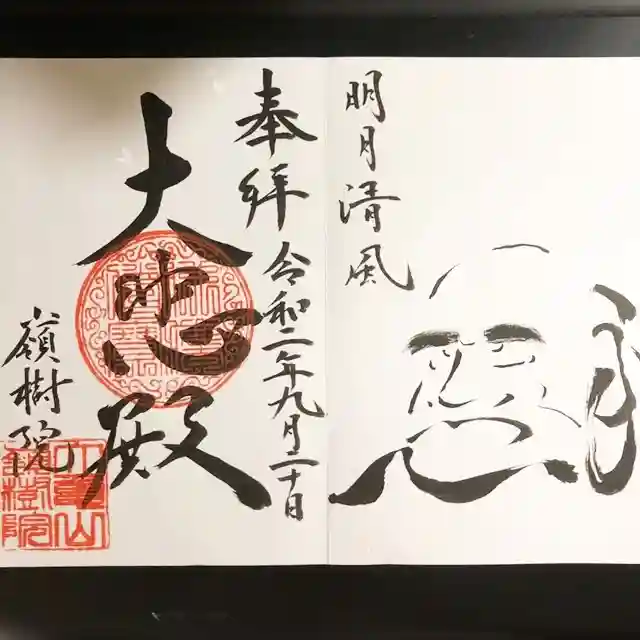 明月清風
奉拝
令和二年九月二十日
大 殿
嶺樹院